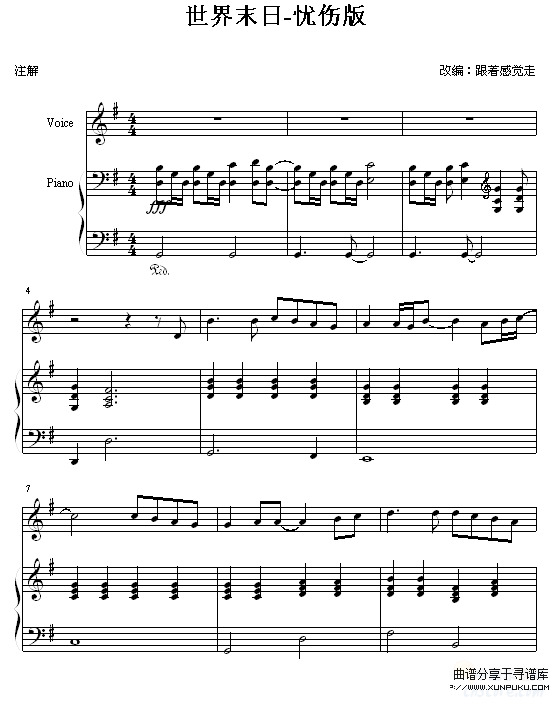 世界末日-忧伤版
注解
改编：跟著感觉走
Voice
Piano
fff
Ped.
4
7
曲谱分享于寻谱库
WWW.XUNPUKU.COM